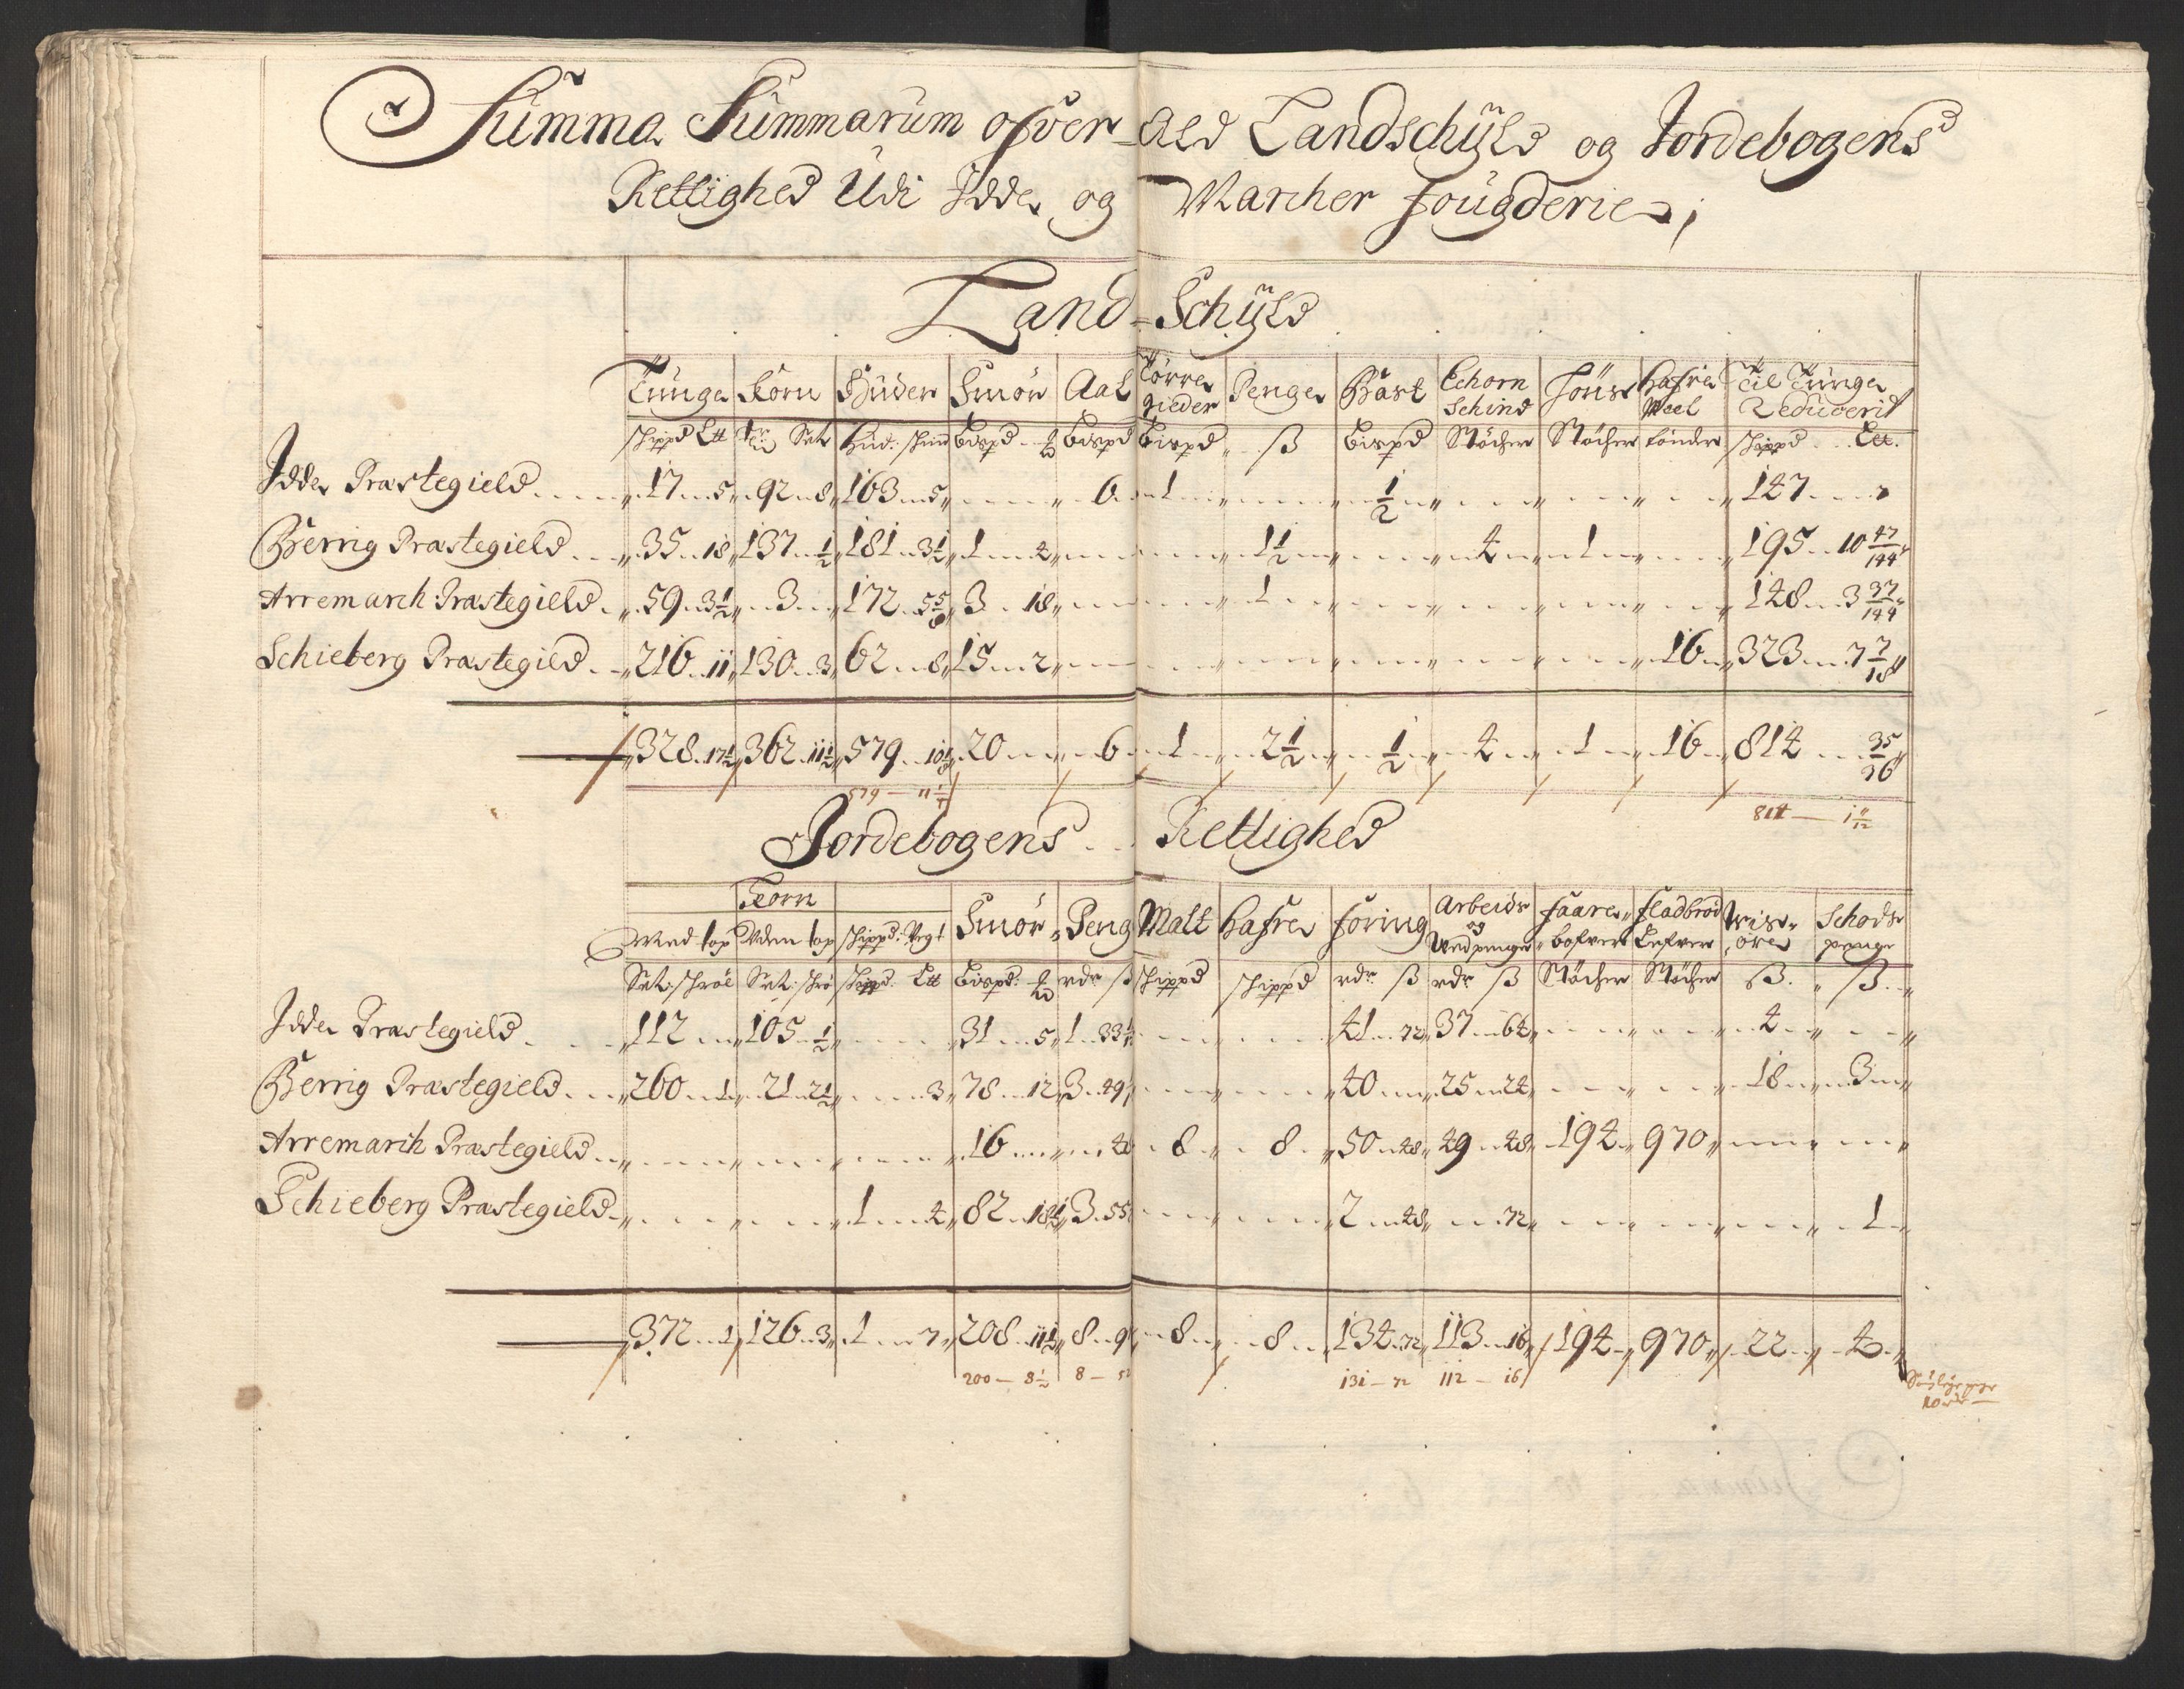 Summa Summarum ofver Ald Landschÿld og Jordebogens
Rettighed Udi Idde og Marcher fougderie;
Land-Schÿld
Tunge Korn Huder Smør Aal Tørre gieder Penge Bast Echorn Schind Hafre Meel Til Tunge Reducerit
schippd Ltt Set Hud: schind bispd bispd bispd ß bispd Støcher Støcher tønder schippd Ltt.
Idde Præstegield 17 5 92 8 163 5 6 1 1/2 147
Berrig Præstegield 35 18 137 1/2 181 3 1/2 1 4 1 1/2 4 1 195 10 47/144
Arremarch Præstegield 59 3 1/2 3 172 5 5/8 3 18 1 148 3 37/144
Schieberg Præstegield 216 11 130 3 62 8 15 2 16 323 7 7/18
328 17 1/2 362 11 1/2 579 10 1/8 20 6 1 2 1/2 1/2 4 1 16 814 35/36
579 — 11
814 — 1
Jordebogens Rettighed
Korn
Med top Uden top schippd: Vegt Smør Peng Malt Hafre foring Arbeids og Vedpenge faare bofver fladbrød Lefver Wiss-øre Schods penge
Set: schrøl Set: schippd. Ltt bispd: rdr ß schippd schippd rdr ß rdr ß Støcher Støcher ß. ß.
Idde Præstegield 112 105 1/2 31 5 1 33 41 72 37 64 4
Berrig Præstegield 260 1 21 2 1/2 3 78 12 3 49 40 25 24 18 3
Arremarch Præstegield 16 8 8 50 48 49 48 194 970
Schieberg Præstegield 1 4 82 18 1/2 3 55 2 48 72 1
372 1 126 3 1 7 208 11 1/2 8 9 8 8 134 72 113 16 194 970 22 4
200 — 8 1/2 8 — 131 — 72 112 — 16